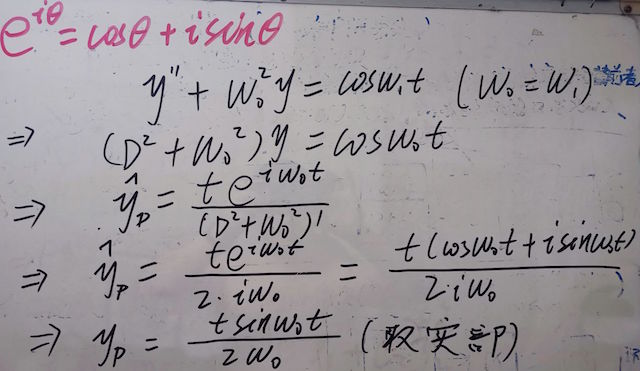 e^{iθ} = cosθ + i sinθ
y'' + W₀²y = cosw₁t (W₀ = W₁)
⇒ (D² + W₀²)y = cosw₀t
⇒ ŷₚ = \frac{te^{iw₀t}}{(D² + W₀²)'}
⇒ ŷₚ = \frac{te^{iw₀t}}{2·iw₀} = \frac{t(cosw₀t + i sinw₀t)}{2iw₀}
⇒ yₚ = \frac{t sinw₀t}{2w₀} (取实部)